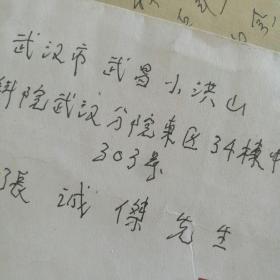 武汉市武昌小洪山
科院武汉分院東区34棟中
303号
張誠傑先生